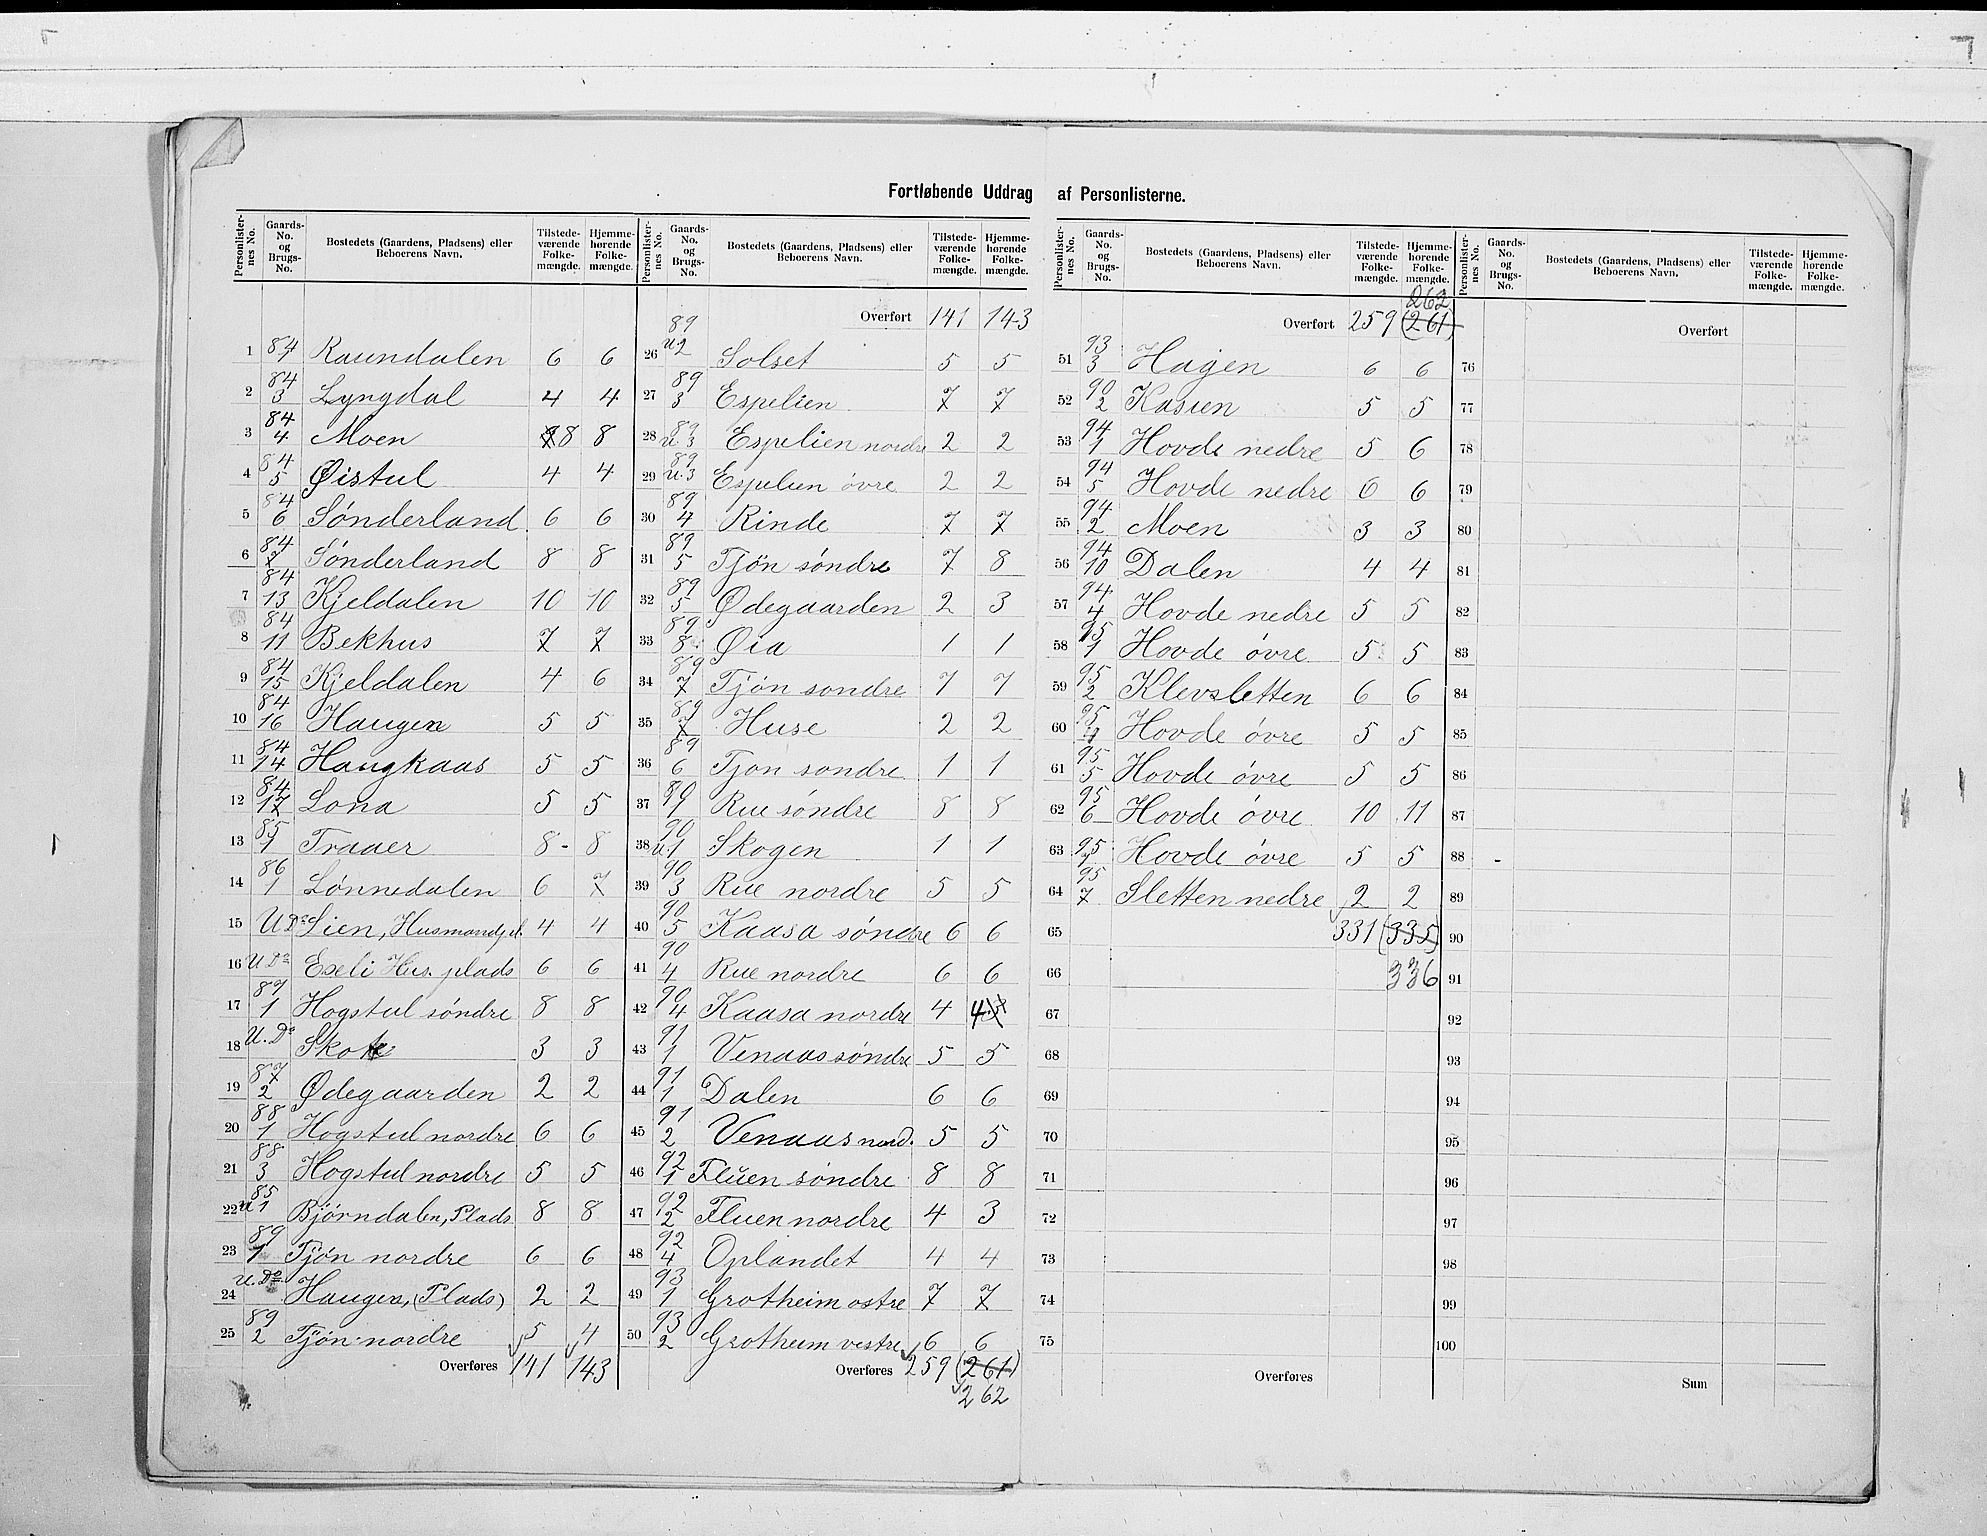 Fortløbende Uddrag af Personlisternes.
Personlister-nes No. Gaards-No. og Brugs-No. Bostedets (Gaardens, Pladsens) eller Beboerens Navn. Tilstede-værende Folke-mængde. Hjemme-hørende Folke-mængde.
1 84 Raundalen 6 6
2 84 3 Lyngdal 4 4
3 84 4 Moen 8 8
4 84 5 Øistul 4 4
5 84 6 Sønderland 6 6
6 84 7 Sønderland 8 8
7 84 13 Kjeldalen 10 10
8 84 11 Bekhus 7 7
9 84 15 Kjeldalen 4 6
10 84 16 Haugen 5 5
11 84 14 Haugkaas 5 5
12 84 17 Lona 5 5
13 85 1 Traaer 8 - 8
14 86 1 Lønnedalen 6 7
15 U Do Lien, Husmandspl. 4 4
16 U Do Eseli Hus. plads 6 6
17 87 1 Hogstul søndre 8 8
18 U. Do 3 3
19 87 2 Ødegaarden 2 2
20 88 1 Hogstul nordre 6 6
21 88 3 Hogstul nordre 5 5
22 85 u 1 Bjørndalen, Plads 8 8
23 89 1 Tjøn nordre 6 6
24 u. Do Haugen, (Plads) 2 2
25 89 2 Tjøn nordre 5 4
Overføres 141 143
Personlister-nes No. Gaards-No. og Brugs-No. Bostedets (Gaardens, Pladsens) eller Beboerens Navn. Tilstede-værende Folke-mængde. Hjemme-hørende Folke-mængde.
Overført 141 143
26 89 u 2 Solset 5 5
27 89 3 Espelien 7 7
28 89 u. 3 Espelien nordre 2 2
29 89 u. 3 Espelien øvre 2 2
30 89 4 Rinde 7 7
31 89 5 Tjön søndre 7 8
32 89 5 Ødegaarden 2 3
33 89 8 Øia 1 1
34 89 7 Tjøn sondre 7 7
35 89 7 Huse 2 2
36 89 6 Tjon sondre 1 1
37 90 1 Rue søndre 8 8
38 90 u. 1 Skogen 1 1
39 90 3 Rue nordre 5 5
40 90 5 Kaasa søndre 6 6
41 90 4 Rue nordre 6 6
42 90 4 Kaasa nordre 4 4
43 91 1 Venaas søndre 5 5
44 91 1 Dalen 6 6
45 91 2 Venaas nord. 5 5
46 92 1 Fluen søndre 8 8
47 92 2 Fluen nordre 4 3
48 92 4 Oplandet 4 4
49 93 1 Grotheim ostre 7 7
50 93 2 Grotheim vestre 6 6
Overføres 259 (261)
262
Personlister-nes No. Gaards-No. og Brugs-No. Bostedets (Gaardens, Pladsens) eller Beboerens Navn. Tilstede-værende Folke-mængde. Hjemme-hørende Folke-mængde.
262
Overført 259 (261)
51 93 3 Hagen 6 6
52 90 2 Kasien 5 5
53 94 1 Hovde nedre 5 6
54 94 5 Hovde nedre 6 6
55 94 2 Moen 3 3
56 94 10 Dalen 4 4
57 94 4 Hovde nedre 5 5
58 95 1 Hovde øvre 5 5
59 95 2 Klevsletten 6 6
60 95 4 Hovde øvre 5 5
61 95 5 Hovde øvre 5 5
62 95 6 Hovde øvre 10 11
63 95 Hovde øvre 5 5
64 95 7 Sletten nedre 2 2
65 331 (335)
66 336
67
68
69
70
71
72
73
74
75
Overføres
Personlister-nes No. Gaards-No. og Brugs-No. Bostedets (Gaardens, Pladsens) eller Beboerens Navn. Tilstede-værende Folke-mængde. Hjemme-hørende Folke-mængde.
Overført
76
77
78
79
80
81
82
83
84
85
86
87
88
89
90
91
92
93
94
95
96
97
98
99
100
Sum